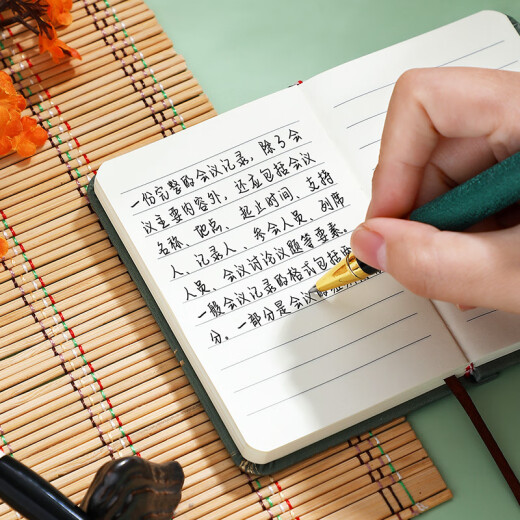 一份完整的会议记录，除了会
议主要内容外，还应包括会议
名称、地点、起止时间、支持
人、记录人、参会人员、列席
人员、会议讨论议题等要素。
一般会议记录的格式包括两
分，一部分是会议的